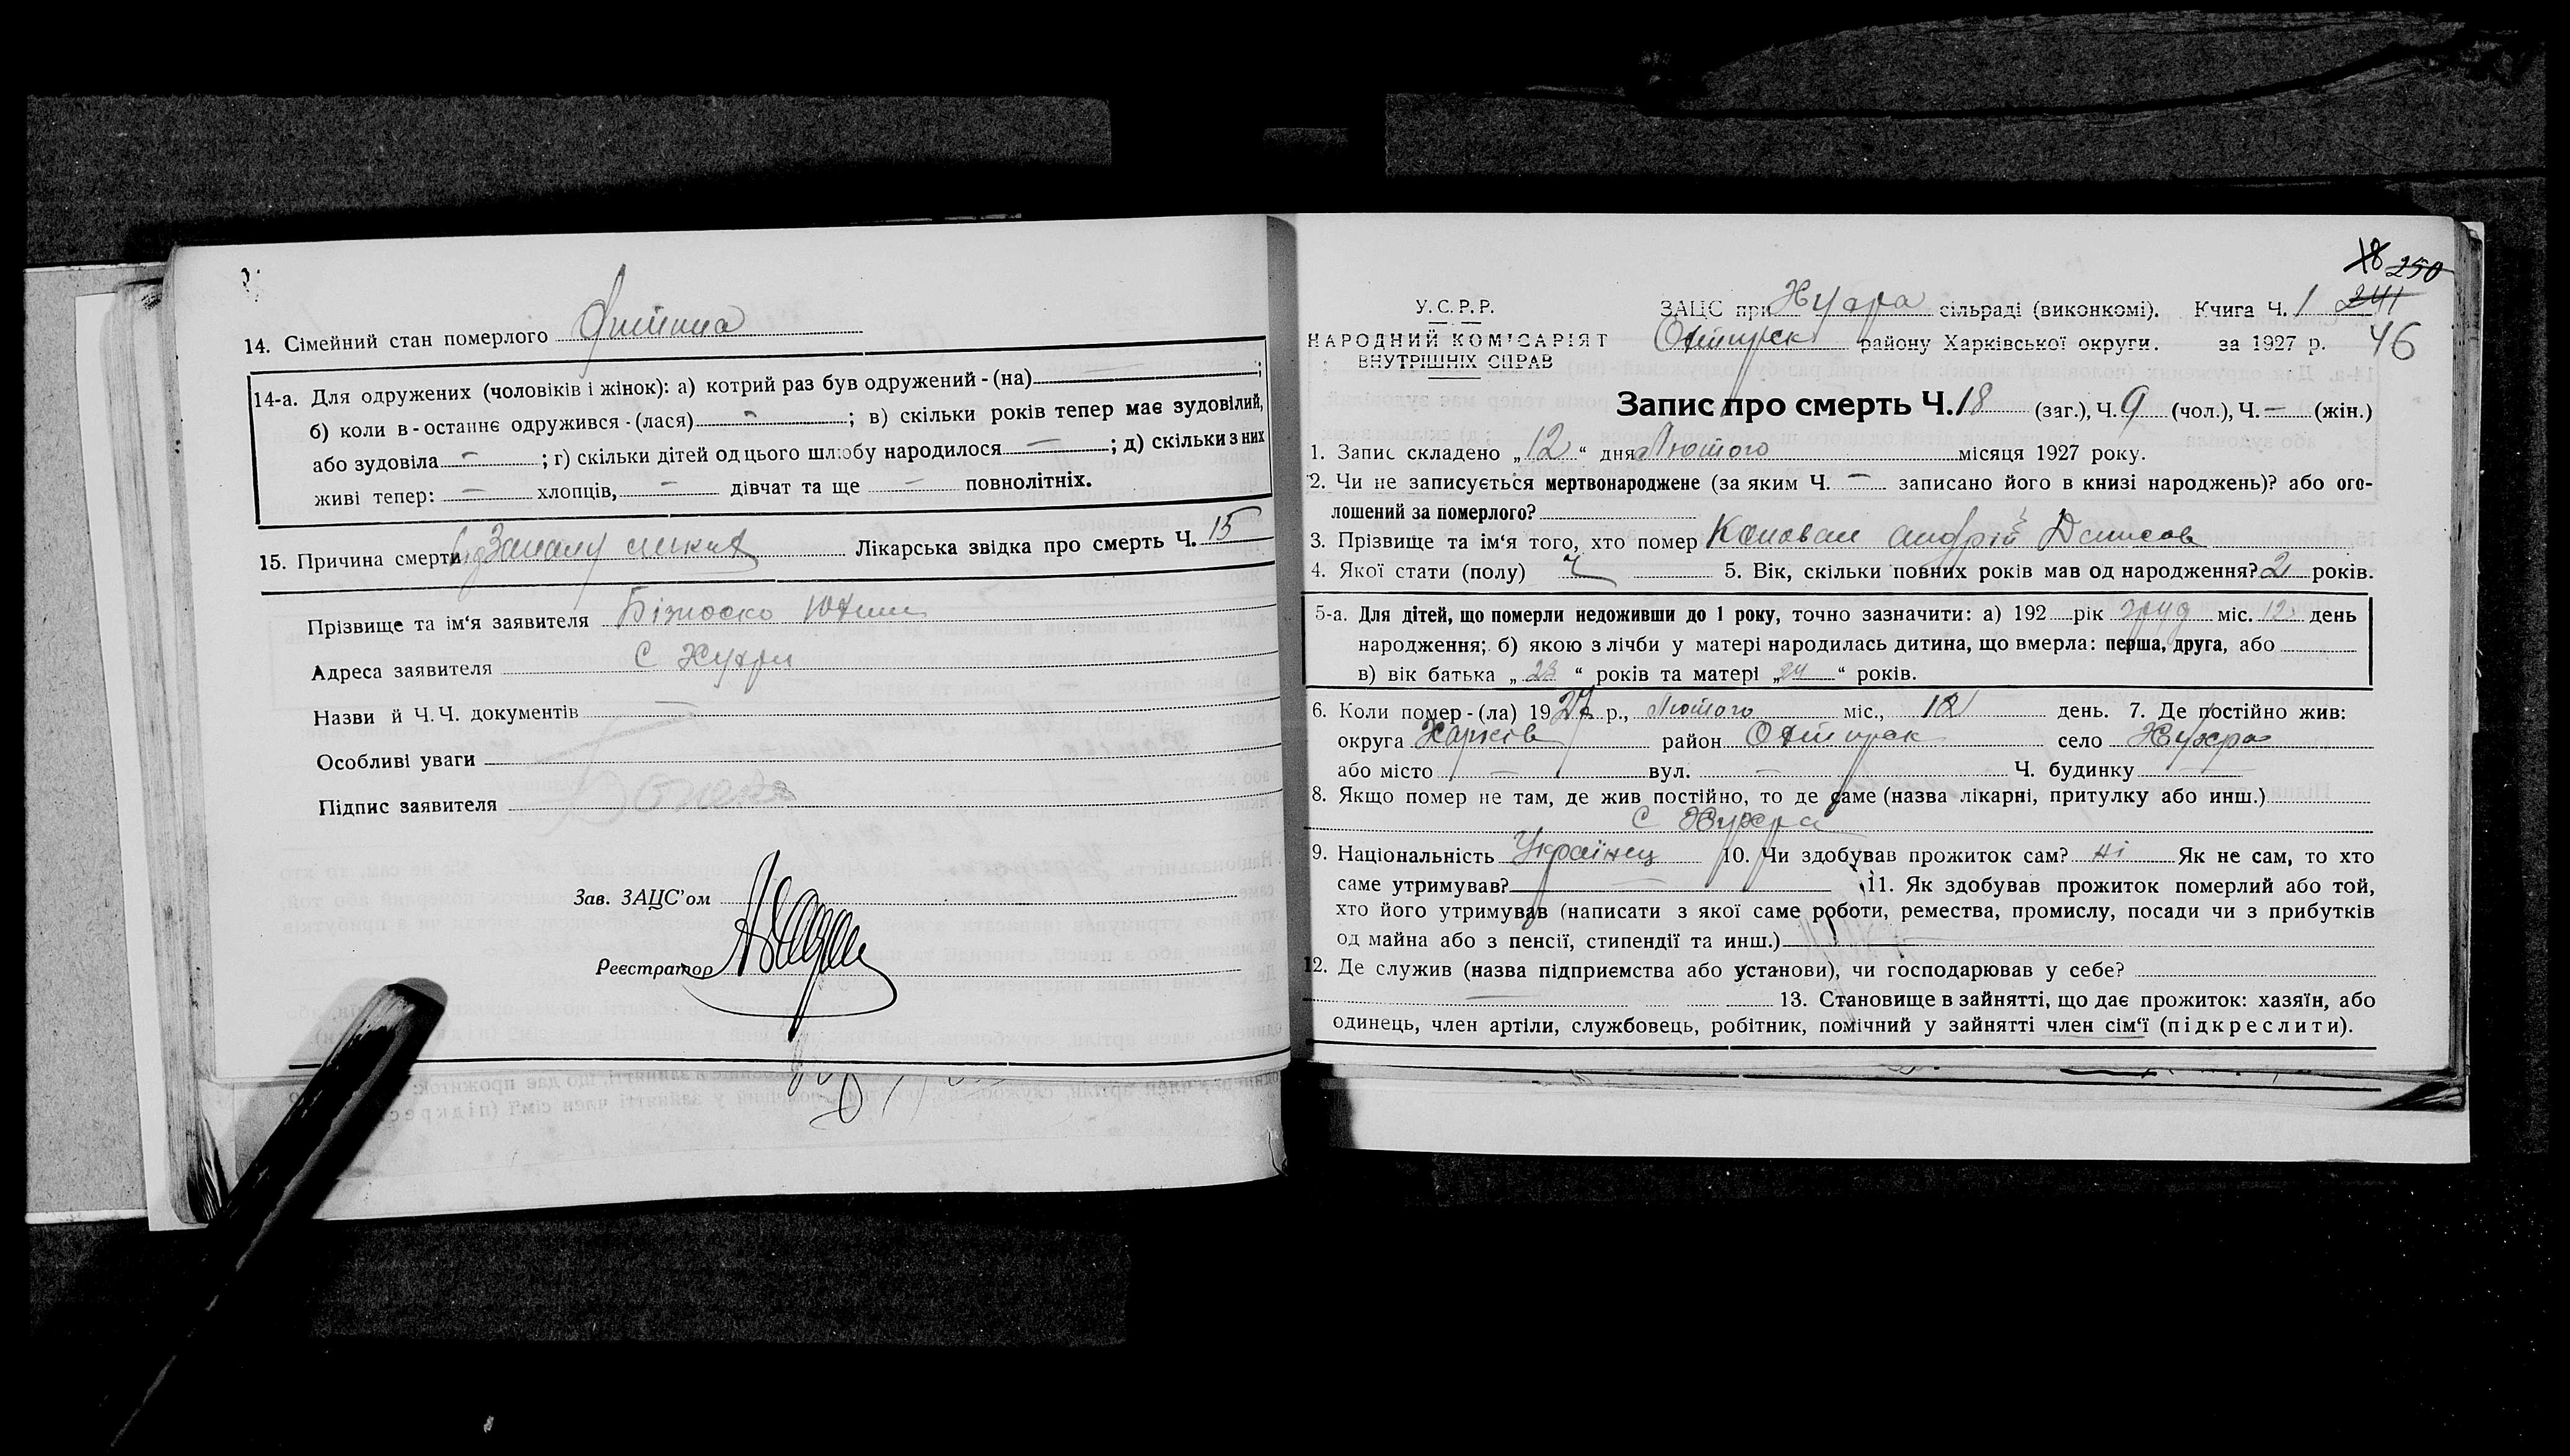 14. Сімейний стан померлого дитина
14-а. Для одружених (чоловіків і жінок): а) котрий раз був одружений - (на) ;
б) коли в - останнє одружився - (лася) — ; в) скільки років тепер має зудовілий,
або зудовіла — ; г) скільки дітей од цього шлюбу народилося — ; д) скільки з них
живі тепер: — хлопців, — дівчат та ще — повнолітніх.
15. Причина смерти від Лікарська звідка про смерть Ч. 15
Прізвище та ім'я заявителя
Адреса заявителя С Хухри
Назви й Ч. Ч. документів —
Особливі уваги
Підпис заявителя
Зав. ЗАЦС'ом
Реєстратор
18 250
У. С. Р. Р. ЗАЦС при Хухра сільраді (виконкомі). Книга Ч. 1 241
НАРОДНИЙ КОМІСАРІЯТ Охтирськ району Харківської округи. за 1927 р. 46
ВНУТРІШНІХ СПРАВ
Запис про смерть Ч. 18 (заг.), Ч. 9 (чол.), Ч. — (жін.)
1. Запис складено „12“ дня Лютого місяця 1927 року.
2. Чи не записується мертвонароджене (за яким Ч. — записано його в книзі народжень)? або ого-
лошений за померлого?
3. Прізвище та ім'я того, хто помер Коновал Андрій Денисов
4. Якої стати (полу) ч 5. Вік, скільки повних років мав од народження? 2 років.
5-а. Для дітей, що померли недоживши до 1 року, точно зазначити: а) 192 рік груд міс. 12 день
народження; б) якою з лічби у матері народилась дитина, що вмерла: перша, друга, або
в) вік батька „23“ років та матері „24“ років.
6. Коли помер - (ла) 1927 р., Лютого міс., 12 день. 7. Де постійно жив:
округа Харків район Охтирск село Хухра
або місто — вул. — Ч. будинку —
8. Якщо помер не там, де жив постійно, то де саме (назва лікарні, притулку або инш.)
С Хухра
9. Національність Українец 10. Чи здобував прожиток сам? ні Як не сам, то хто
саме утримував? — 11. Як здобував прожиток померлий або той,
хто його утримував (написати з якої саме роботи, ремества, промислу, посади чи з прибутків
од майна або з пенсії, стипендії та инш.)
12. Де служив (назва підприємства або установи), чи господарював у себе?
— 13. Становище в зайнятті, що дає прожиток: хазяїн, або
одинець, член артіли, службовець, робітник, помічний у зайнятті член сім'ї (підкреслити).